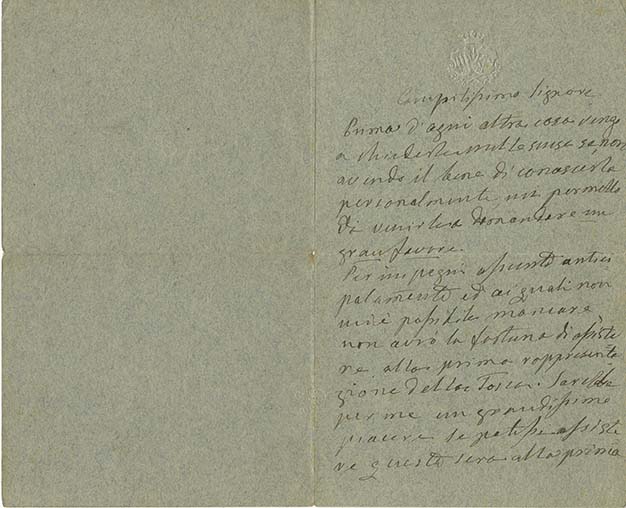 Compitissimo Signore
Prima d'ogni altra cosa vengo
a chiederle mille scuse se non
avendo il bene di conoscerla
personalmente, mi permetto
di venirle a domandare un
gran favore.
Per impegni assunti antici
patamente ed ai quali non
mi è possibile mancare
non avrò la fortuna di assiste
re alla prima rappresenta
zione della Tosca. Sarebbe
per me un grandissimo
piacere se potessi assiste
re questa sera alla prima